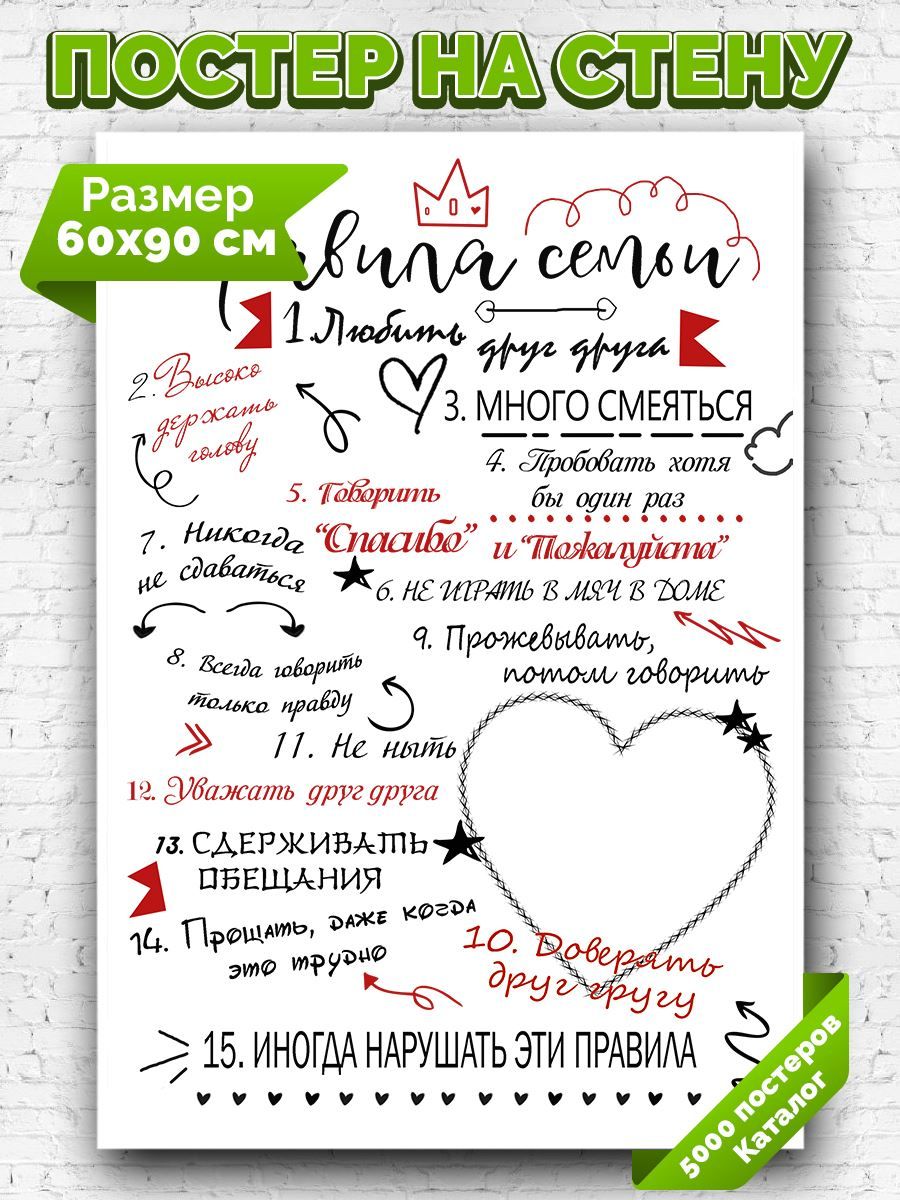 ПОСТЕР НА СТЕНУ
Размер
60х90 см
авила семьи
1.Любить
друг друга
2. Высоко
держать
голову
3. МНОГО СМЕЯТЬСЯ
4. Пробовать хотя
бы один раз
5. Говорить
“Спасибо”
и “Пожалуйста”
6. НЕ ИГРАТЬ В МЯЧ В ДОМЕ
7. Никогда
не сдаваться
8. Всегда говорить
только правду
9. Прожевывать,
потом говорить
11. Не ныть
12. Уважать друг друга
13. СДЕРЖИВАТЬ
ОБЕЩАНИЯ
14. Прощать, даже когда
это трудно
10. Доверять
друг гругу
15. ИНОГДА НАРУШАТЬ ЭТИ ПРАВИЛА
5000 постеров
Каталог